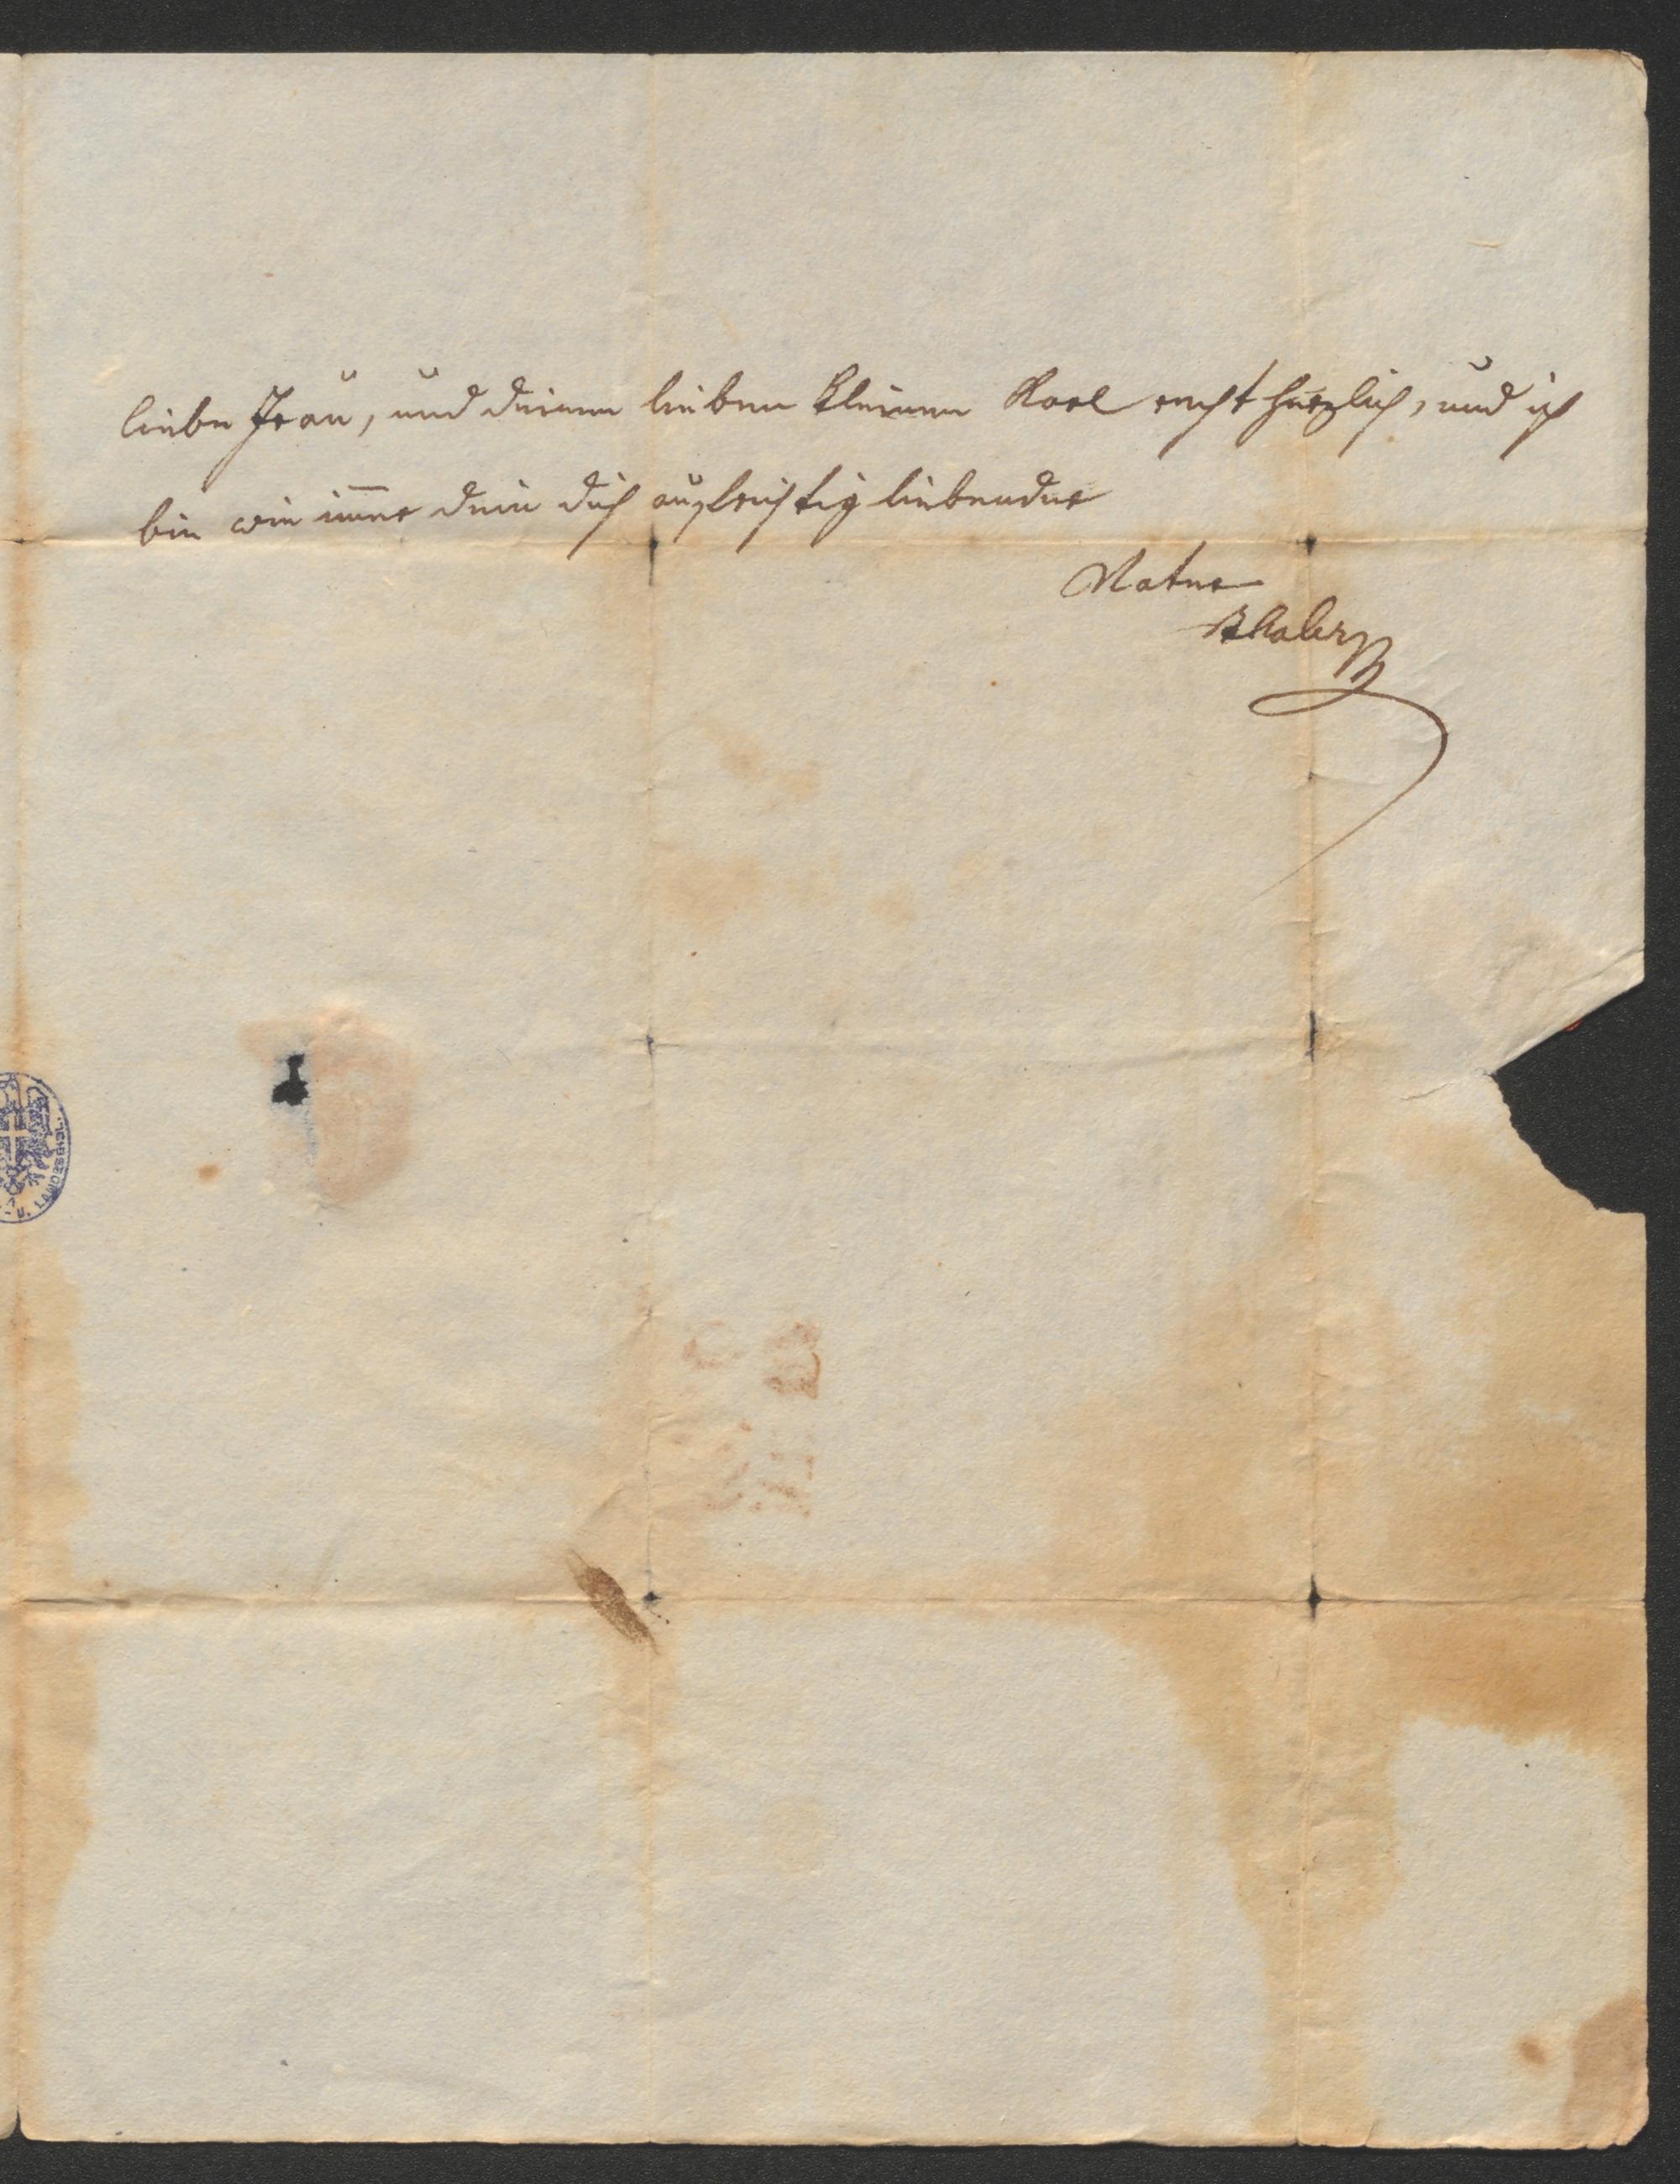 liebe Frau, und deinen lieben kleinen Karl recht herzlich, und ich
bin wie im̅er dein dich aufrichtig liebender
Vater
LANDESBIBL.